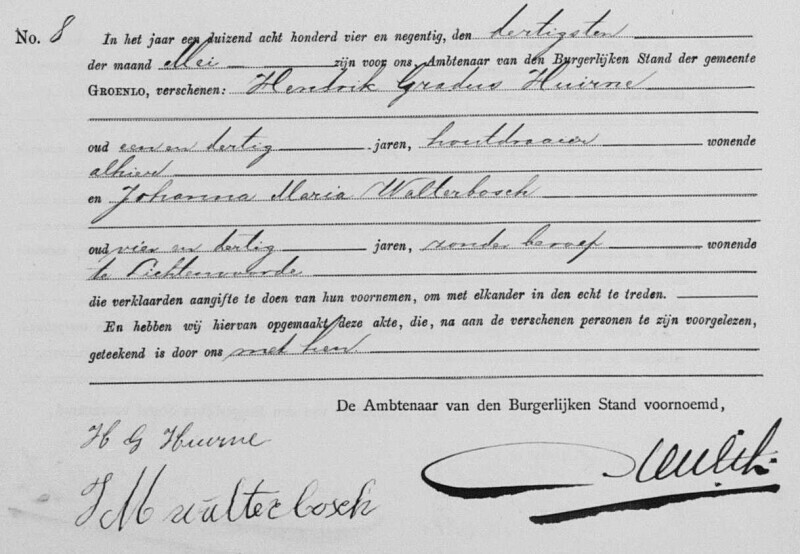 No. 8 In het jaar een duizend acht honderd vier en negentig, den dertigsten
der maand Mei zijn voor ons, Ambtenaar van den Burgerlijken Stand der gemeente
GROENLO, verschenen: Hendrik Gradus Huirne
oud een en dertig jaren, houtdraaier wonende
alhier
en Johanna Maria Walterbosch
oud vier en dertig jaren, zonder beroep wonende
te Lichtenvoorde
die verklaarden aangifte te doen van hun voornemen, om met elkander in den echt te treden.
En hebben wij hiervan opgemaakt deze akte, die, na aan de verschenen personen te zijn voorgelezen,
geteekend is door ons met hen.
De Ambtenaar van den Burgerlijken Stand voornoemd,
H G Huirne
J M walterbosch